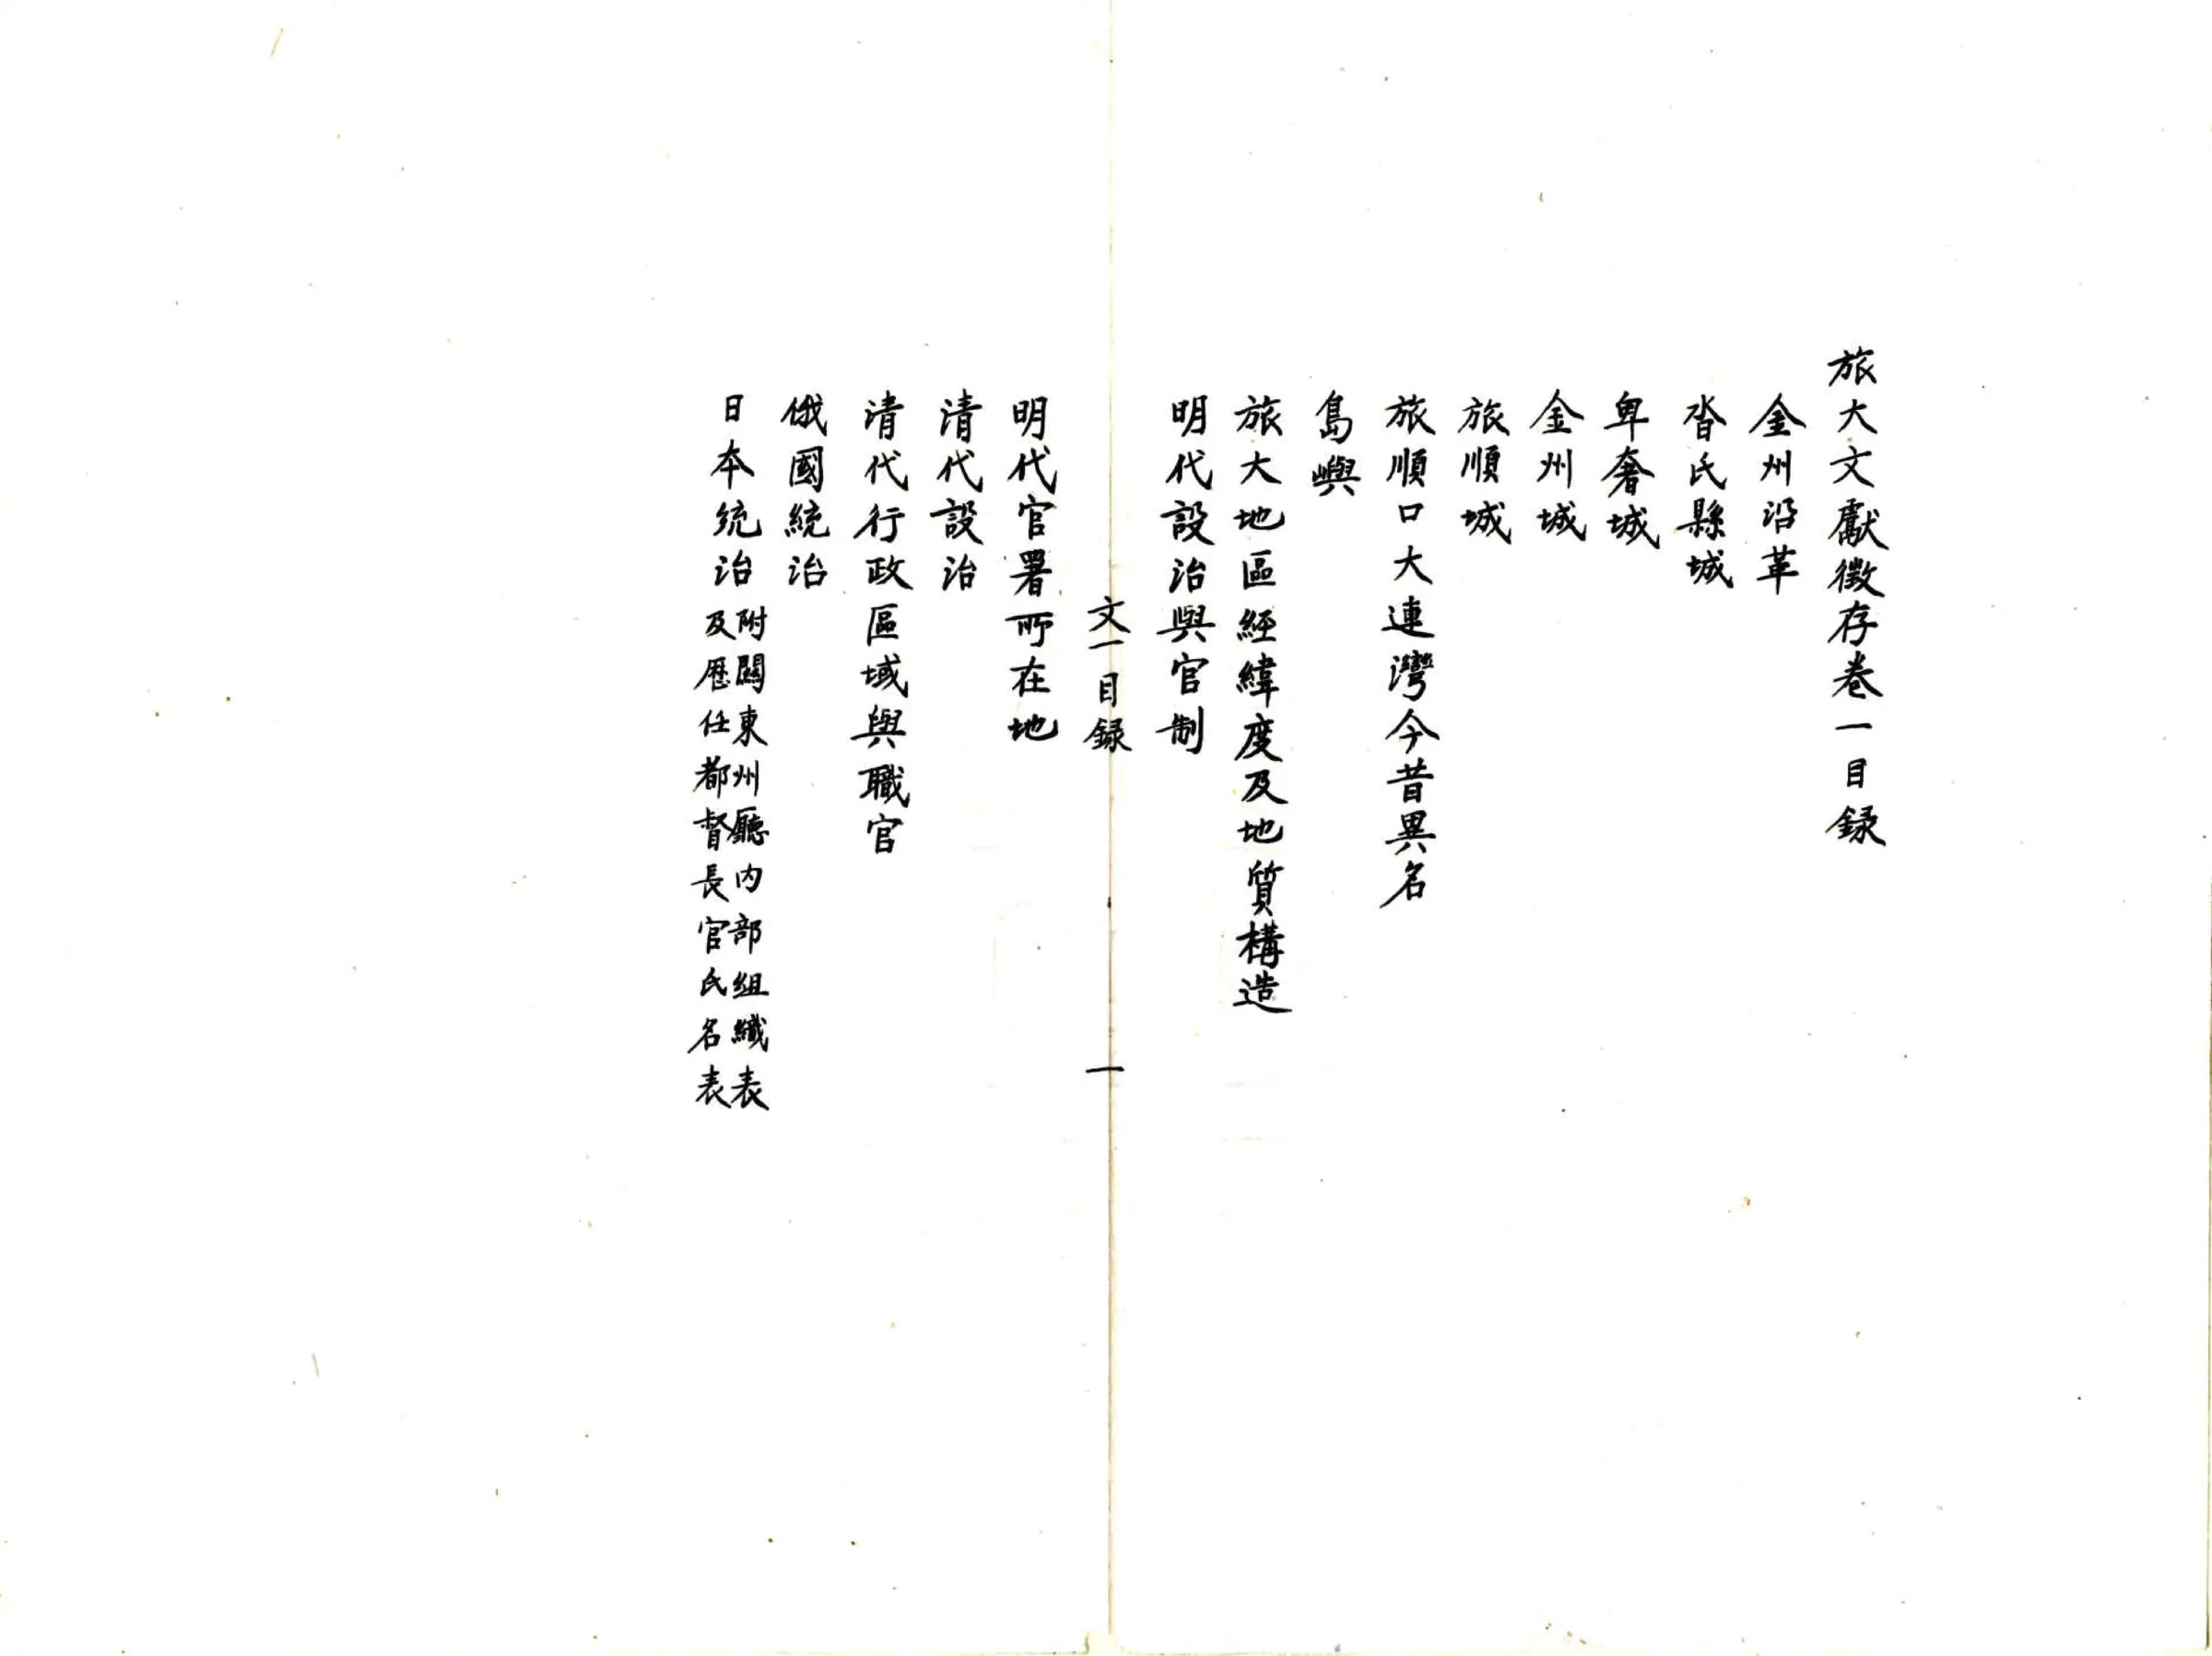 旅大文獻徵存卷一目録
金州沿革
沓氏縣城
卑奢城
金州城
旅順城
旅順口大連灣今昔異名
島嶼
旅大地區經緯度及地質構造
明代設治與官制
文一目録
一
明代官署所在地
清代設治
清代行政區域與職官
俄國統治
日本统治
附關東州廳内部組織表
及歷任都督長官氏名表